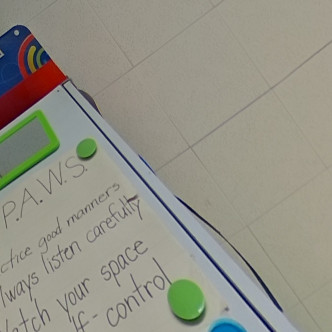 P.A.W.S.
ctice good manners
lways listen carefully
atch your space
lf-control